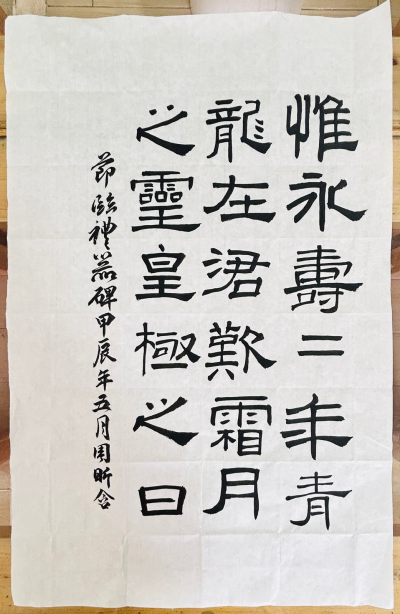 惟永壽二年青
龍在涒歎霜月
之靈皇極之日
節臨禮器碑甲辰年五月周昕含